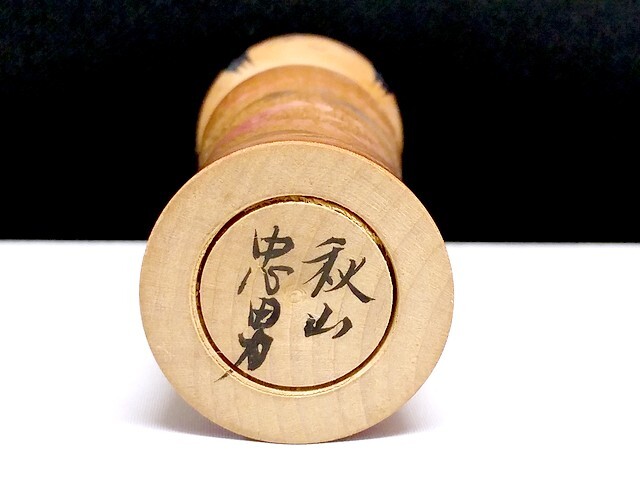 秋山
忠男